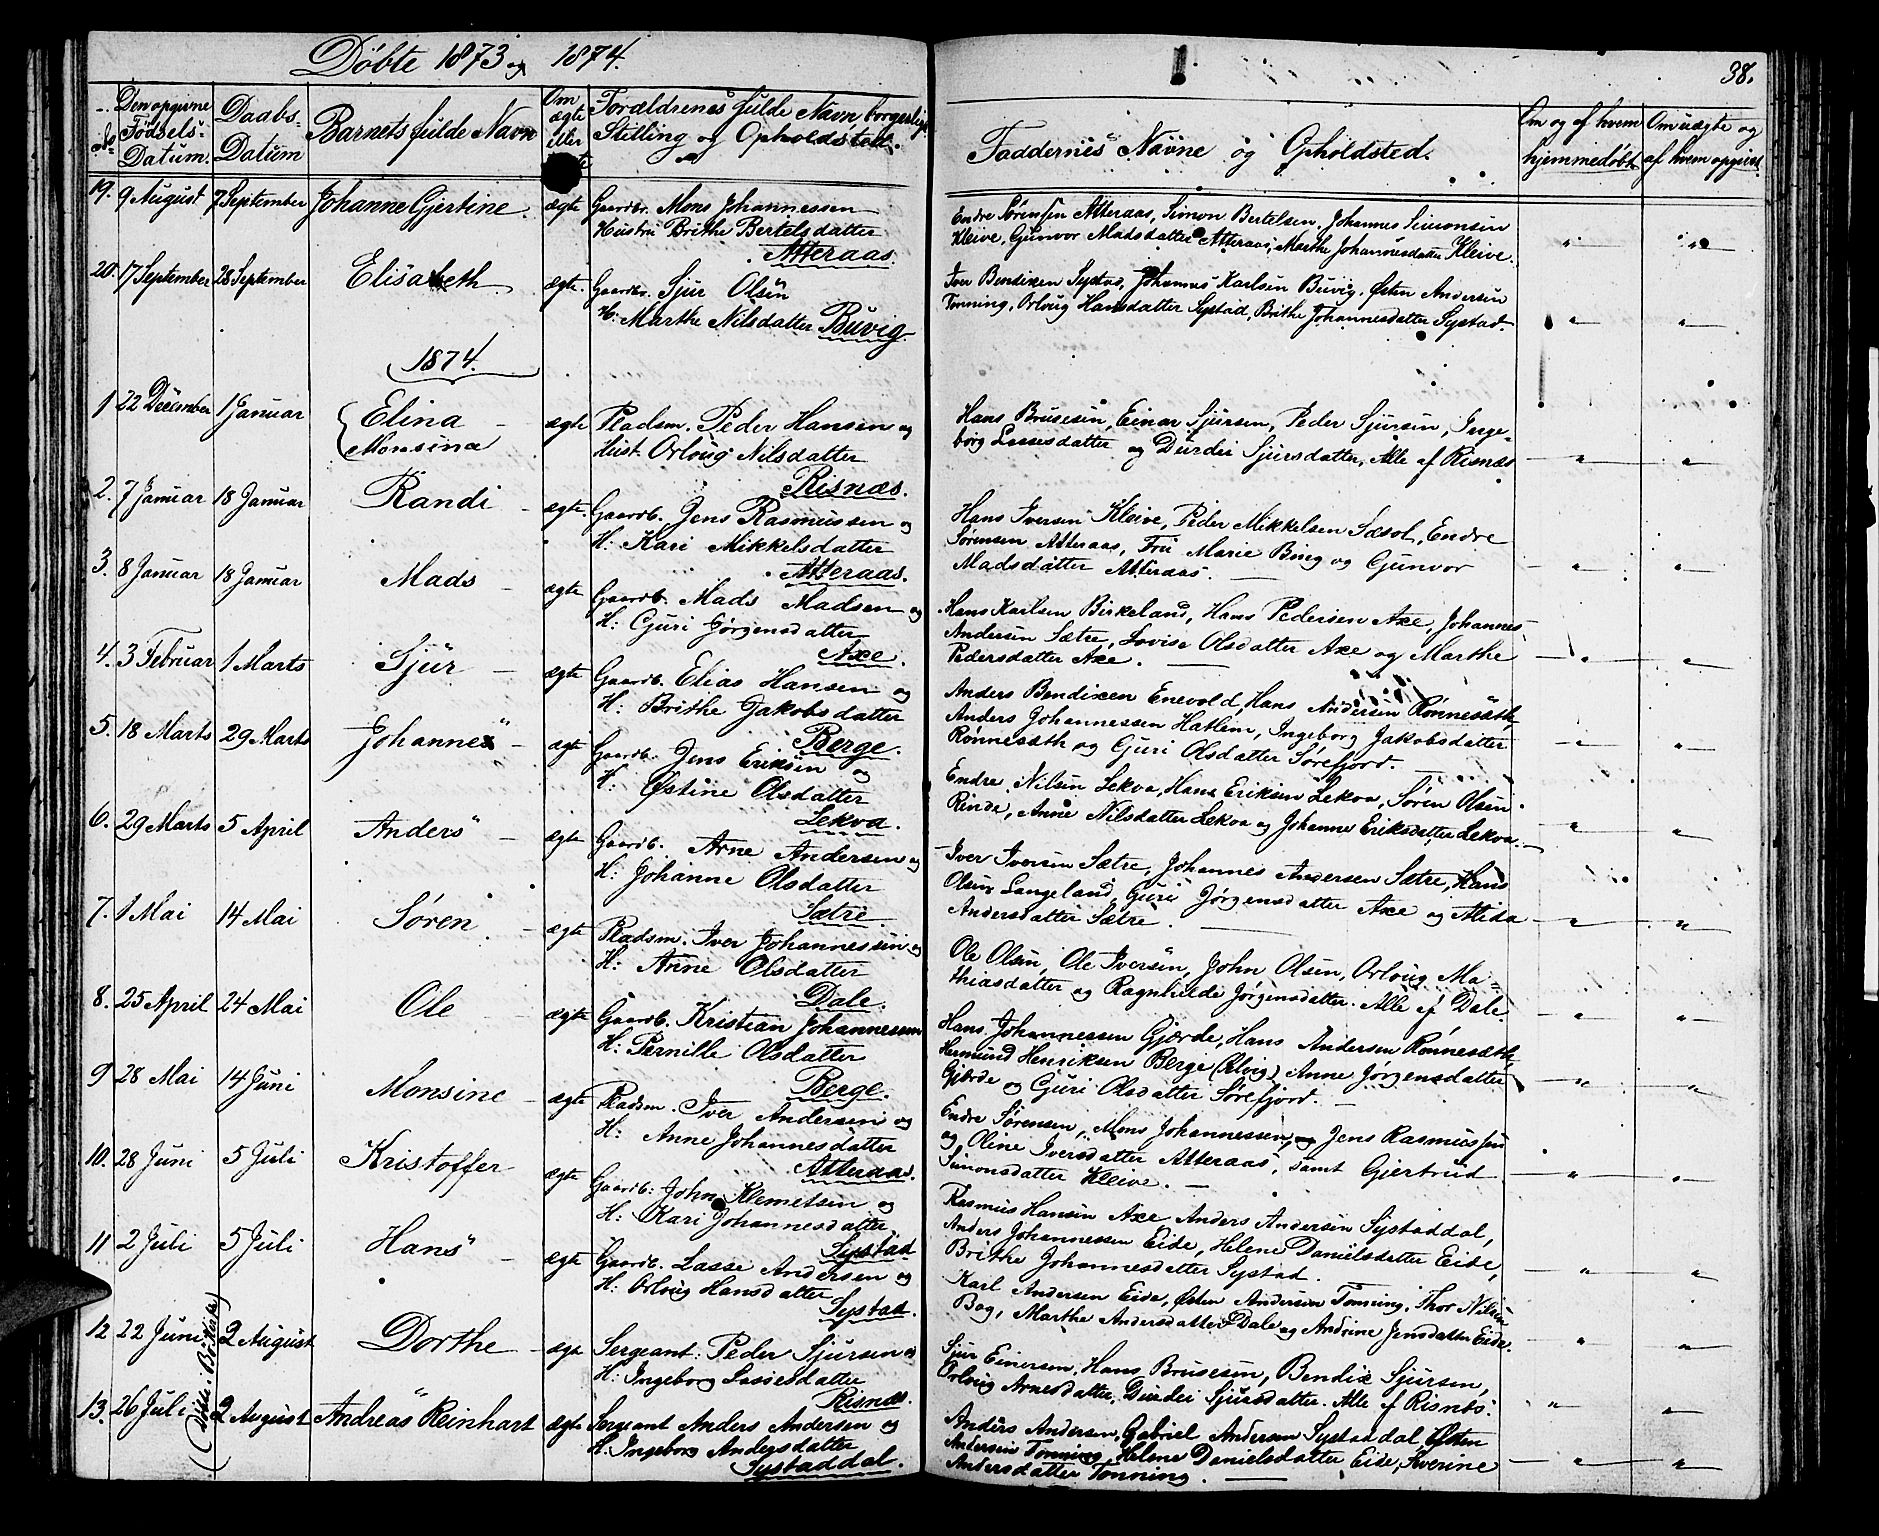 Döbte 1873 og 1874.
38.
No
Den opgivne Födsels-Datum.
Daabs-Datum
Barnets fulde Navn
Om ægte eller
Forældrenes fulde Navn borgerlige Stilling og Opholdsted.
Faddernes Navne og Opholdsted.
Om og af hvem hjemmedöbt
Om uægte og af hvem opgivet
19. 9 August 7 September Johanne Gjertine. ægte Gaardbr. Mons Johannessen
Hustru Brithe Bertelsdatter
Atteraas.
Endre Sørensen Atteraas, Simon Bertelsen, Johannes Simonsen
Kleive, Gunvor Madsdatter Atteraas, Marthe Johannesdatter Kleive.
20. 17 September 28 September Elisabeth. ægte. Gaardbr. Sjur Olsen
H: Marthe Nilsdatter Buvig.
Iver Bendixen Systad, Johannes Karlsen Buvig, Østen Andersen
Tonning, Orloug Hansdatter Systad, Brithe Johannesdatter Systad.
1874.
1 22 December 1 Januar Elina
Monsina
ægte Pladsm. Peder Hansen og
Hust. Orloug Nilsdatter
Risnæs.
Hans Brusesen, Einar Sjursen, Peder Sjursen, Inge-
borg Lassesdatter og Durdei Sjursdatter, Alle af Risnæs
2. 7 Januar 18 Januar Randi ægte. Gaardb. Jens Rasmussen og
H: Kari Mikkelsdatter
Atteraas.
Hans Iversen Kleive, Peder Mikkelsen Sæsol, Endre
Sørensen Atteraas, Fru Marie Bing og Gunvor
Madsdatter Atteraas.
3. 8 Januar 18 Januar Mads ægte Gaardb. Mads Madsen og
H: Guri Jørgensdatter
Axe.
Hans Karlsen Birkeland, Hans Pedersen Axe, Johannes
Andersen Sætre, Lovise Olsdatter Axe og Marthe
Pedersdatter Axe.
4. 3 Februar 1 Marts Sjur ægte Gaardb. Elias Hansen og
H: Brithe Jakobsdatter
Berge.
Anders Bendixen Enevold, Hans Andersen Rønnesæth,
Anders Johannessen Hatlem, Ingeborg Jakobsdatter
Rønnesæth og Guri Olsdatter Sørefjord.
5. 18 Marts 29 Marts Johannes ægt Gaardb. Jens Eriksen og
H: Østine Olsdatter
Lekva.
Endre Nilsen Lekva, Hans Eriksen Lekva, Søren Olsen
Rinde, Anne Nilsdatter Lekva og Johanne Eriksdatter Lekva.
6. 29 Marts 5 April Anders ægte Gaardb. Arne Andersen og
H: Johanne Olsdatter
Sætre
Iver Iversen Sætre, Johannes Andersen Sætre, Hans
Olsen Langeland, Guri Jørgensdatter Axe og Alida
Andersdatter Sætre.
7. 1 Mai 14 Mai Søren ægte Pladsm. Iver Johannessen og
H: Anne Olsdatter
Dale.
Ole Olsen, Ole Iversen, John Olsen, Orloug Ma-
thiasdatter og Ragnhilde Jørgensdatter. Alle af Dale.
8. 25 April 24 Mai Ole ægte Gaardb. Kristian Johannessen
H: Pernille Olsdatter
Berge.
Hans Johannessen Gjærde, Hans Andersen Rønnesæth
Hermund Henriksen Berge Anne Jørgensdatter
Gjærde og Guri Olsdatter Sørefjord.
9 28 Mai 14 Juni Monsine ægte Pladsm. Iver Andersen og
H: Anne Johannesdatter
Atteraas.
Endre Sørensen, Mons Johannessen, og Jens Rasmussen
og Oline Iversdatter Atteraas, samt Gjertrud
Simonsdatter Kleive.
10. 28 Juni 5 Juli Kristoffer ægte Gaardb: John Klemetsen og
H: Kari Johannesdatter
Systad
Rasmus Hansen Axe, Anders Andersen Systaddal,
Anders Johannessen Eide, Helene Danielsdatter Eide,
Brithe Johannesdatter Systad.
11 2 Juli 5 Juli Hans ægte Gaardb. Lasse Andersen og
H: Orloug Hansdatter
Systad.
Karl Andersen Eide, Østen Andersen Tonning, Thor Nilsen
Bog, Marthe Andersdatter Dale og Andrine Jensdatter Eide.
12 22 Juni 2 August Dorthe ægt Sergeant: Peder Sjursen og
H: Ingeborg Lassesdatter
Risnæs.
Sjur Einersen, Hans Brusesen, Bendix Sjursen,
Orloug Arnesdatter, Durdei Sjursdatter. Alle af Risnæs.
13. 26 Juli 2 August Andreas Reinhart ægte Sergeant Anders Andersen og
H. Ingeborg Andersdatter
Systaddal.
Anders Andersen, Gabriel Andersen Systaddal, Østen
Andersen Tonning, Helene Danielsdatter Eide, Severine
Andersdatter Tonning.